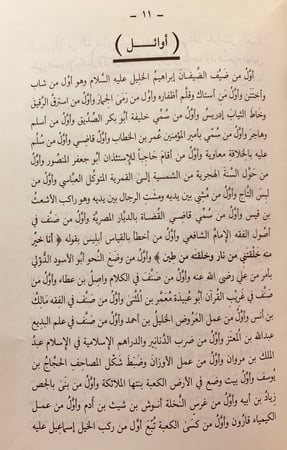 - ١١ -
( أوائـل )
أوّل من ضيَّف الضيفانَ إبراهيمُ الخليل عليه السلام وهو أوّل من شاب
وأختتن وأوَّل من أستاك وقلَّم أظفاره وأوّل من رَمَى الجمارَ وأوّل من استرقَّ الرقيق
وخاط الثيابَ إدريسُ وأوّل مَن سُمِّي خليفة أبو بكر الصدّيق وأوّل من أسلم
وهاجر وأوّل مَن سُمِّي بأمير المؤمنين عمر بن الخطاب وأوّل قاضي وأوّل من سُلّم
عليه بالخلافة معاوية وأوّل من أقام حَاجباً للإستئذان أبو جعفر المنصور وأوّل
من حَوَّل السنَةَ الهجرية من الشمسية إلى القمرية المتوكّل العبّاسي وأوّل من
لبسَ التاج وأوّل مَن مُشي بين يديه ومشت الرجال بين يديه وهو راكب الأشعثُ
بن قيس وأوّل من سُمِّي قاضي القضاة بالديار المصريّة وأوّل من صَنَّف في
أصول الفقه الإمامُ الشافعي وأوّل من أخطأ بالقياس أبليس بقوله ﴿ أنا خيرٌ
منه خَلَقْتَني من نار وخلقته من طين ﴾ وأوّل من وضعَ النحوَ أبو الأسود الدؤلي
بأمر من علي رضي الله عنه وأوّل مَن صَنَّف في الكلام واصِل بن عطاء وأوّل من
صَنَّف في غريب القرآن أبو عُبيدَة مُعمَّر بن المُثنَّى وأوّل من صَنَّف في الفقه مَالك
بن أنس وأوّل من عمل العَرُوض الخليلُ بن أحمد وأوّل من صَنَّف في علم البديع
عبدالله بن المعتز وأوّل من ضرب الدنانير والدراهم الإسلامية في الإسلام عبدُ
الملك بن مروان وأوّل من عمل الأوزان وضَبَط شَكْل المصاحف الحَجّاجُ بن
يوسف وأوّل بيت وضع في الأرض الكعبة بنتها الملائكة وأوّل من بَنَى بالجص
زيادُ بن أبيه وأوّل من غرس النخلة أنوش بن شيث بن أدم وأوّل من عمل
الكيمياء قارُون وأوّل من كسَى الكعبة تُبَّع أوّل من ركب الخيل إسماعيل عليه